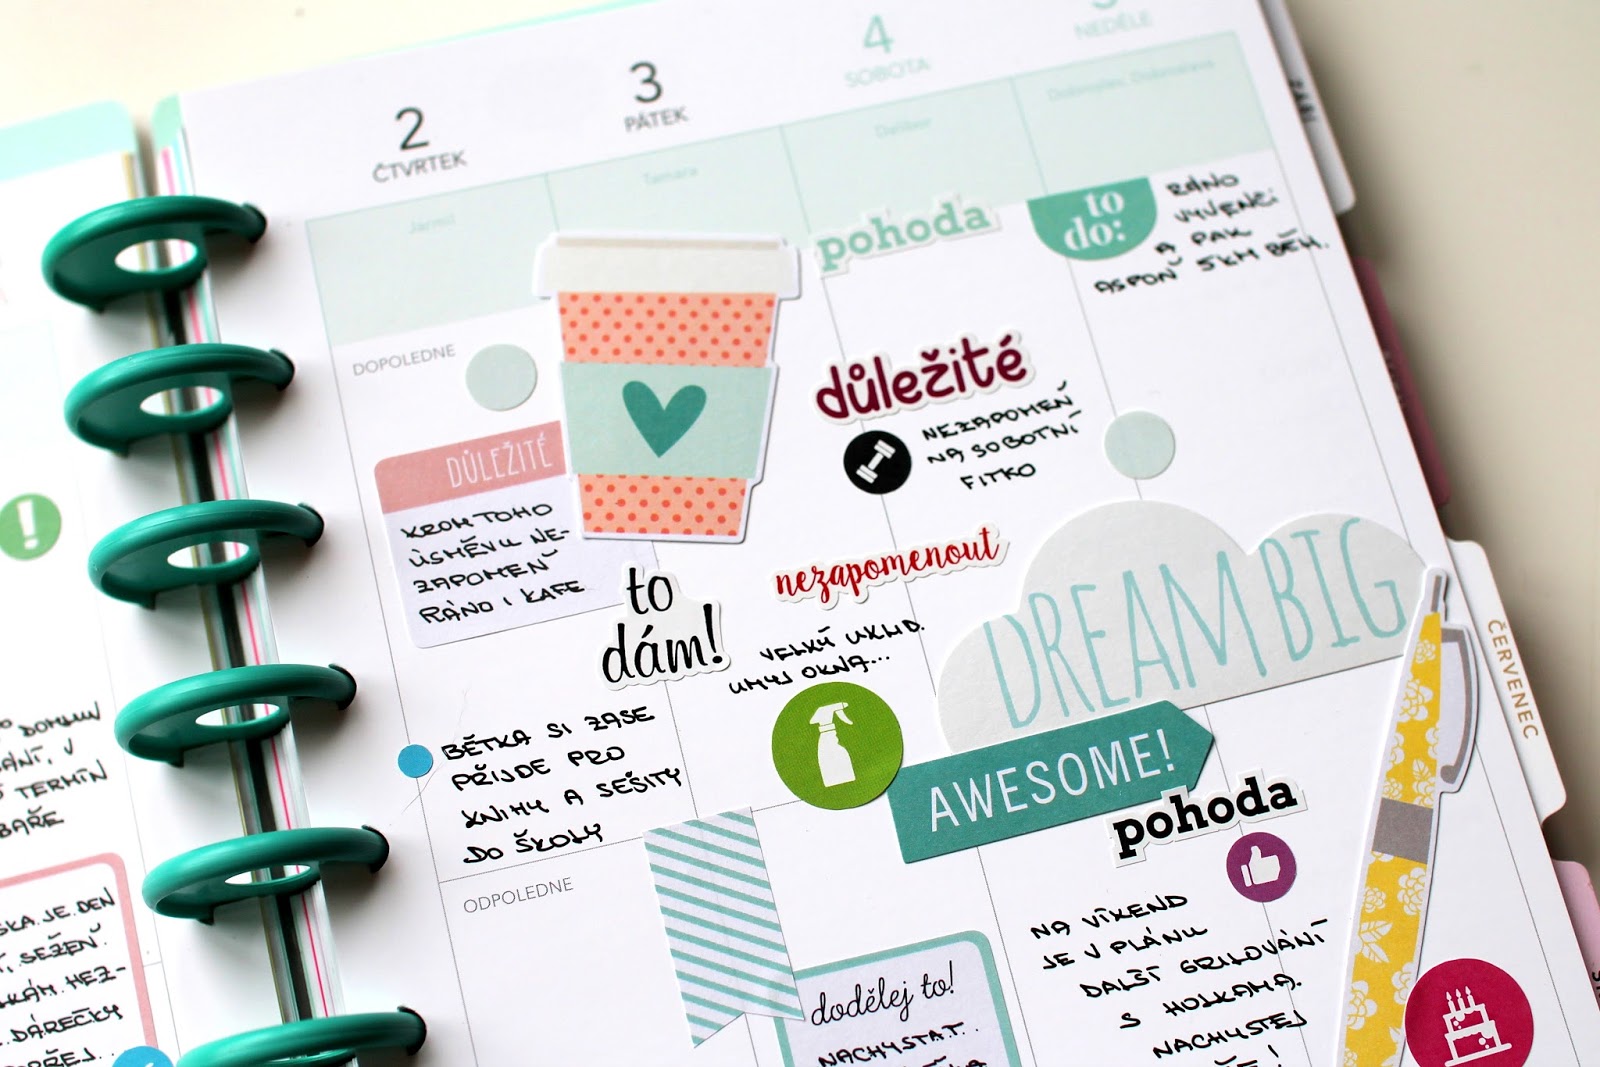 2
ČTVRTEK
3
PÁTEK
4
SOBOTA
NEDĚLE
Jarmil
Tamara
Dalibor
Dobroslav, Dobroslava
DOPOLEDNE
DŮLEŽITÉ
KROM TOHO
ÚSMĚVU NE-
ZAPOMEŇ
RÁNO I KAFE
to
dám!
BĚTKA SI ZASE
PŘIJDE PRO
KNIHY A SEŠITY
DO ŠKOLY
ODPOLEDNE
pohoda
důležité
NEZAPOMEŇ
NA SOBOTNÍ
FITKO
nezapomenout
VELKÝ UKLID.
UMYJ OKNA...
to
do:
RÁNO
VYVENČI
A PAK
ASPOŇ 5KM BĚH.
DREAM BIG
AWESOME!
pohoda
NA VÍKEND
JE V PLÁNU
DALŠÍ GRILOVÁNÍ
S HOLKAMA.
NACHYSTEJ
dodělej to!
NACHYSTAT..
ČERVENEC
DOMLUV
TERMÍN
JE DEN
SEŽEŇ
DÁREČKY